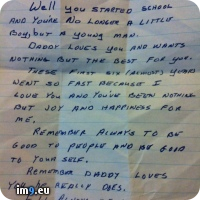 Well you started school
and you're no longer a little
boy, but a young man.
Daddy loves you and wants
nothing but the best for you.
These first six (almost) years
went so fast because I
love you and you've been nothing
but joy and happiness for
me.
Remember always to be
good to people and be good
to your self.
Remember Daddy loves
you he really does.
im9.eu